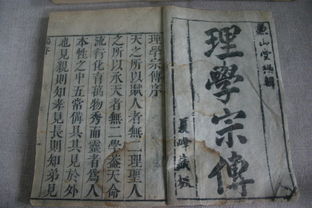 兼山堂編輯
理學宗傳
夏峰藏板
理學宗傳序
天之所以賦人者無二理聖人
之所以承天者無二學蓋天命
流行化育萬物秀而靈者為人
本性之中五常備具其見於外
也見親則知孝見長則知弟見